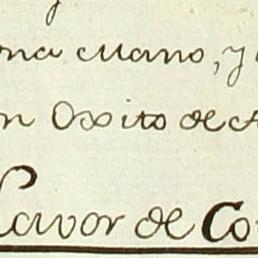 na Mano, y
n Oxito de
Favor de Co